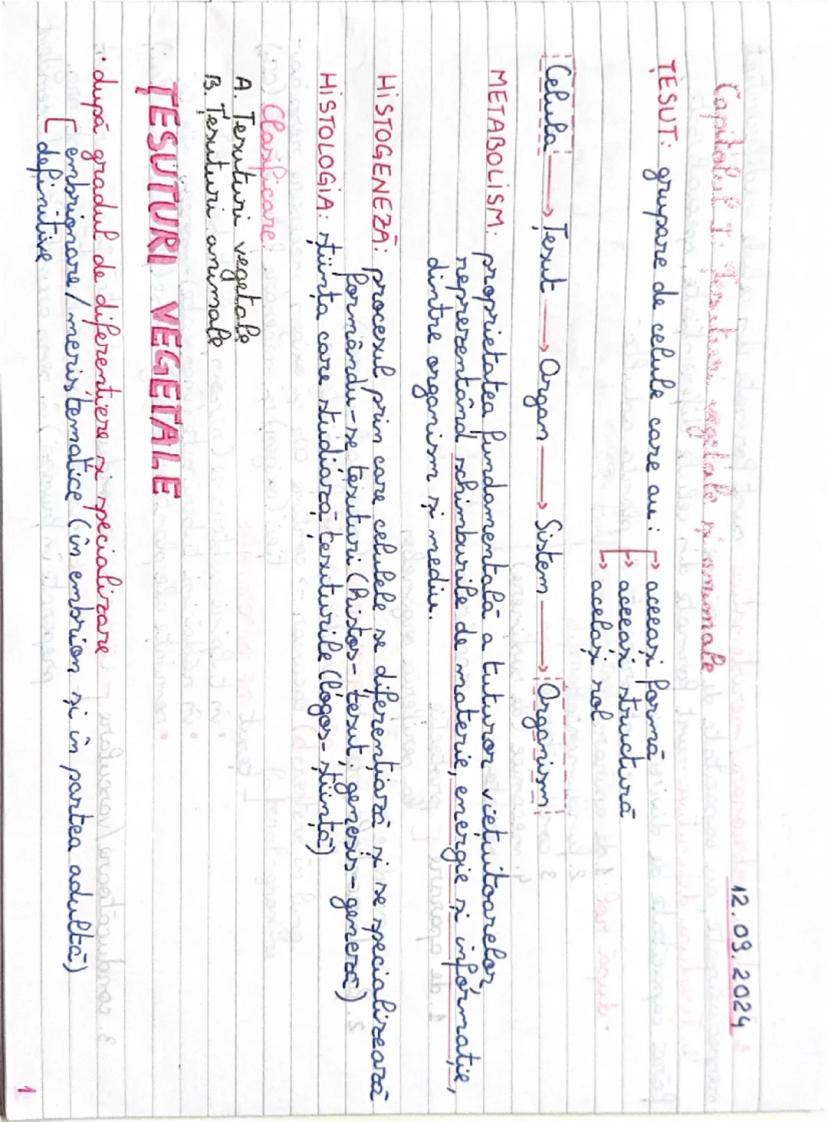 12.09.2024
Capitolul I. Țesuturi vegetale și animale
ȚESUT: grupare de celule care au: → aceeași formă
→ aceeași structură
→ același rol
Celula → Țesut → Organ → Sistem → Organism
METABOLISM: proprietatea fundamentală a tuturor viețuitoarelor,
reprezentând schimburile de materie, energie și informație,
dintre organism și mediu.
HISTOGENEZĂ: procesul prin care celulele se diferențiază și se specializează
formându-se țesuturi (histos-țesut; genesis-geneză)
HISTOLOGIA: știința care studiază țesuturile (logos-știință)
Clasificare:
A. Țesuturi vegetale
B. Țesuturi animale
ȚESUTURI VEGETALE
• după gradul de diferențiere și specializare
embrionare/meristematice (în embrion și în partea adultă)
definitive
1